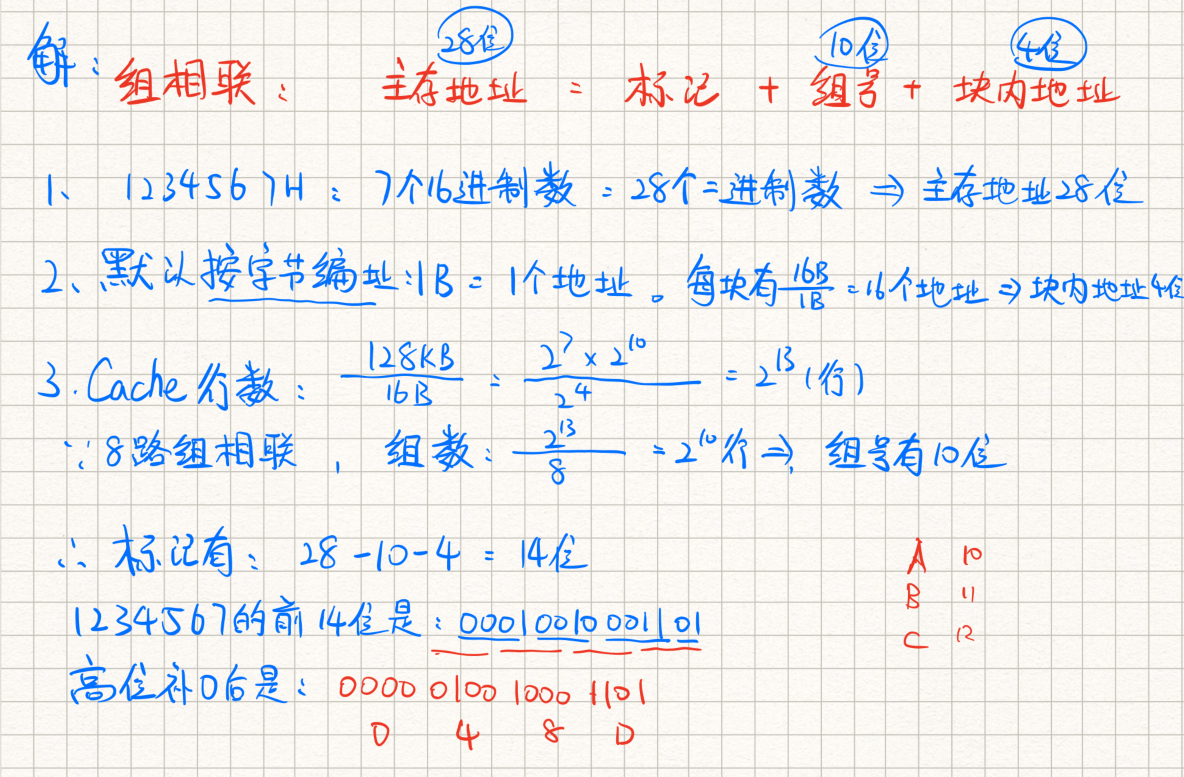 28位 10位 4位
解：组相联： 主存地址 = 标记 + 组号 + 块内地址
1、 1234567H： 7个16进制数 = 28个二进制数 ⇒ 主存地址28位
2、默认按字节编址：1B = 1个地址。每块有16B/1B = 16个地址 ⇒ 块内地址4位
3. Cache行数： 128KB/16B = 2^7 × 2^10 / 2^4 = 2^13 (行)
∵ 8路组相联， 组数： 2^13/8 = 2^10行 ⇒ 组号有10位
∴ 标记有： 28 - 10 - 4 = 14位
1234567的前14位是：00010010001101
高位补0后是： 00000 0100 1000 1101
0 4 8 D
A 10
B 11
C 12